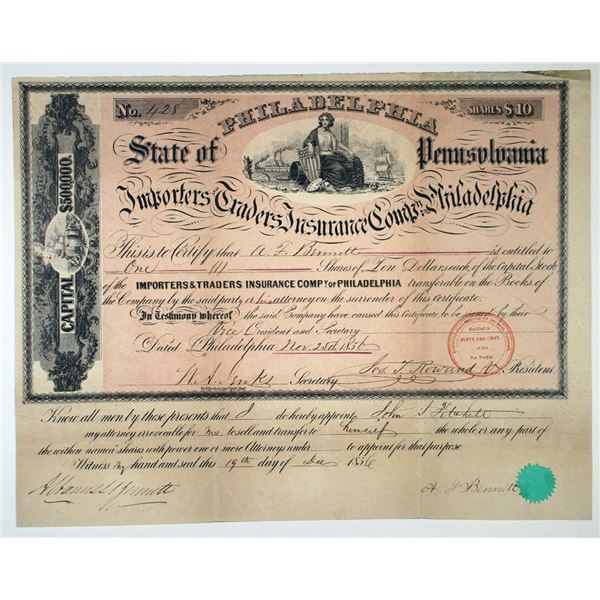 No. 428
SHARES $10
PHILADELPHIA
State of Pennsylvania
Importers and Traders Insurance Compy of Philadelphia
CAPITAL $500,000.
This is to Certify that A F Bennett is entitled to
One Shares of Ten Dollars each of the Capital Stock
of the IMPORTERS & TRADERS INSURANCE COMPY OF PHILADELPHIA transferable on the Books of
the Company by the said party or his attorney on the surrender of this certificate.
In Testimony whereof the said Company have caused this Certificate to be signed by their
Vice President and Secretary
Dated Philadelphia Nov 25th 1856
Secretary
Jos. T. Rowand V President
Entitled to
FIFTY PER CENT.
of the
Net Profits
Know all men by these presents that I do hereby appoint John S
my attorney irrevocable for me to sell and transfer to himself the whole or any part of
the within named shares with power one or more Attorneys under to appoint for that purpose
Witness my hand and seal this 19th day of Dec 1856
Bennett
A F Bennett